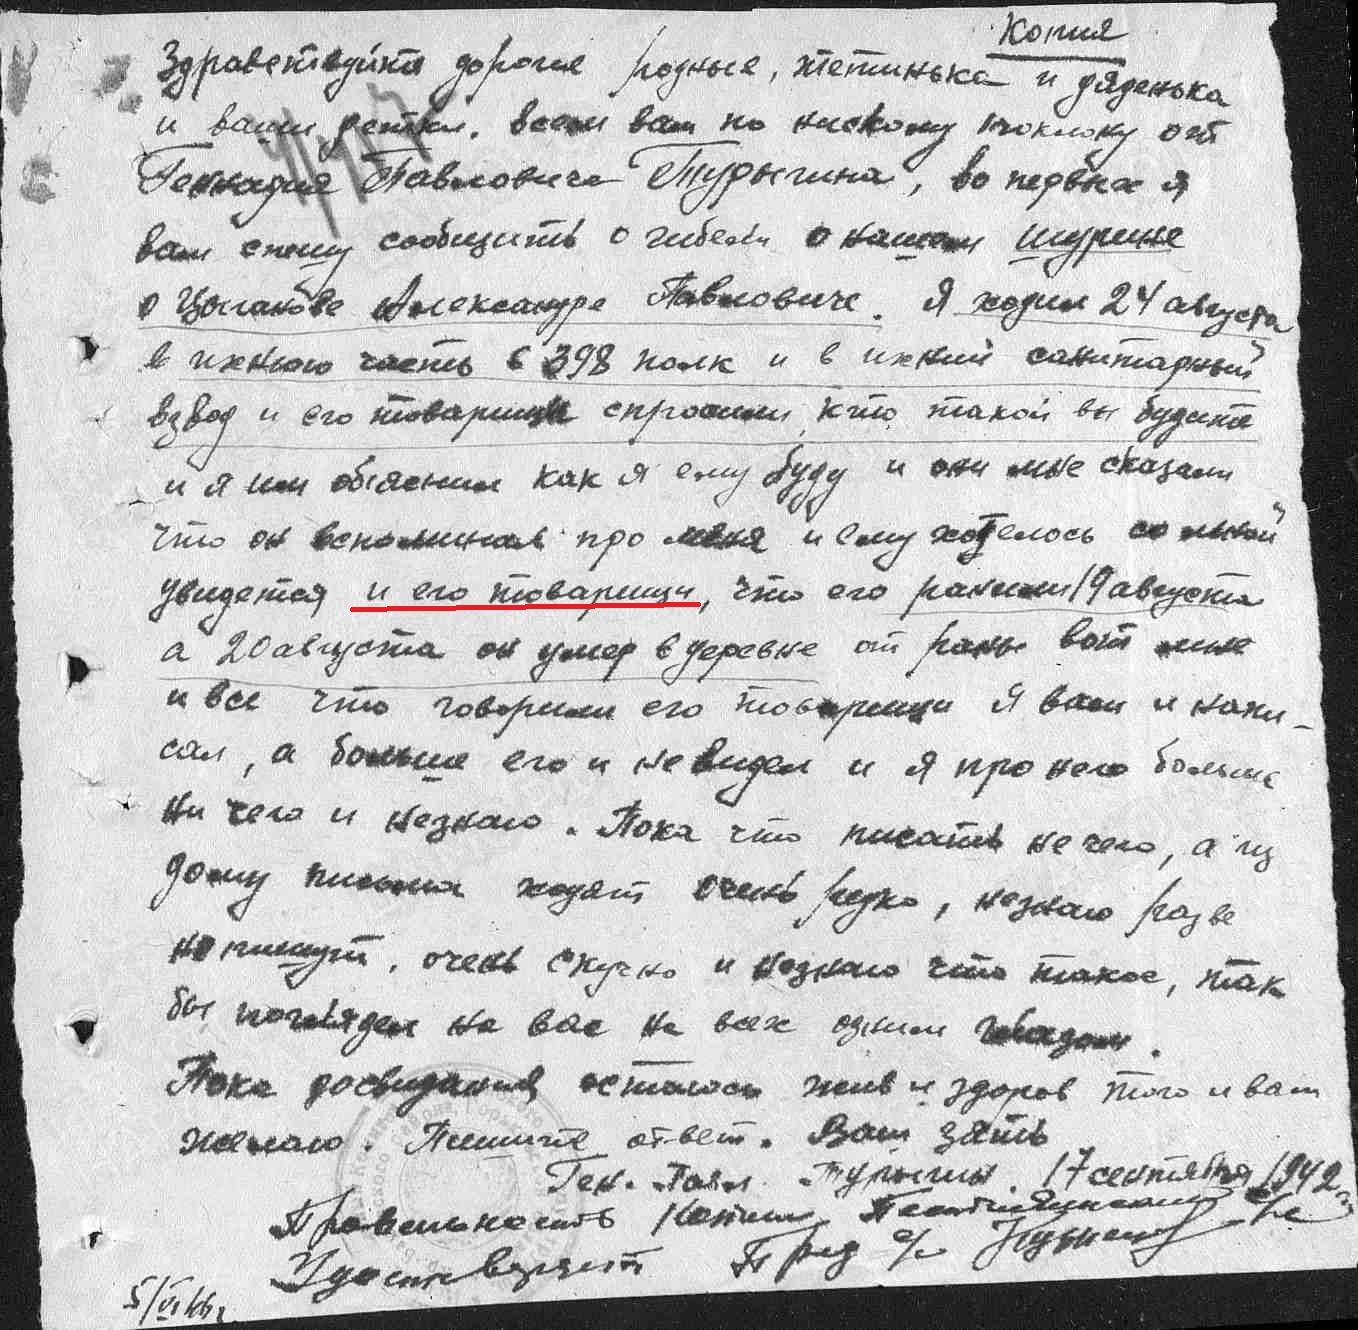 Копия
Здравствуйте дорогие родные, тетинька и дяденька
и ваши детки. всем вам по нискому поклону от
Геннадия Павловича Турыгина, во первых я
вам спешу сообщить о гибели о нашем шурине
о Цыганове Александре Павловиче. Я ходил 24 августа
в ихнюю часть в 398 полк и в ихний санитарный
взвод и его товарищи спросили, кто такой вы будите
и я им обяснил как я ему буду и они мне сказали
что он вспоминал про меня и ему хотелось со мной
увидется и его товарищи, что его ранили 19 августа
а 20 августа он умер в деревне от раны вот мне
и все что говорили его товарищи я вам и напи-
сал, а больше его и не видел и я про него больше
ни чего и незнаю. Пока что писать не чего, а из
дому письма ходят очень редко, незнаю разве
не пишут. очень скучно и незнаю что такое, так
бы поглядел на вас на всех одним глазом.
Пока досвидания остаюсь жив и здоров того и вам
желаю. Пишите ответ. Ваш зять
Ген. Павл. Турыгин. 17 сентября 1942 г.
Правильность копии
Удостоверяет Пред с/с
5/VI 46 г.